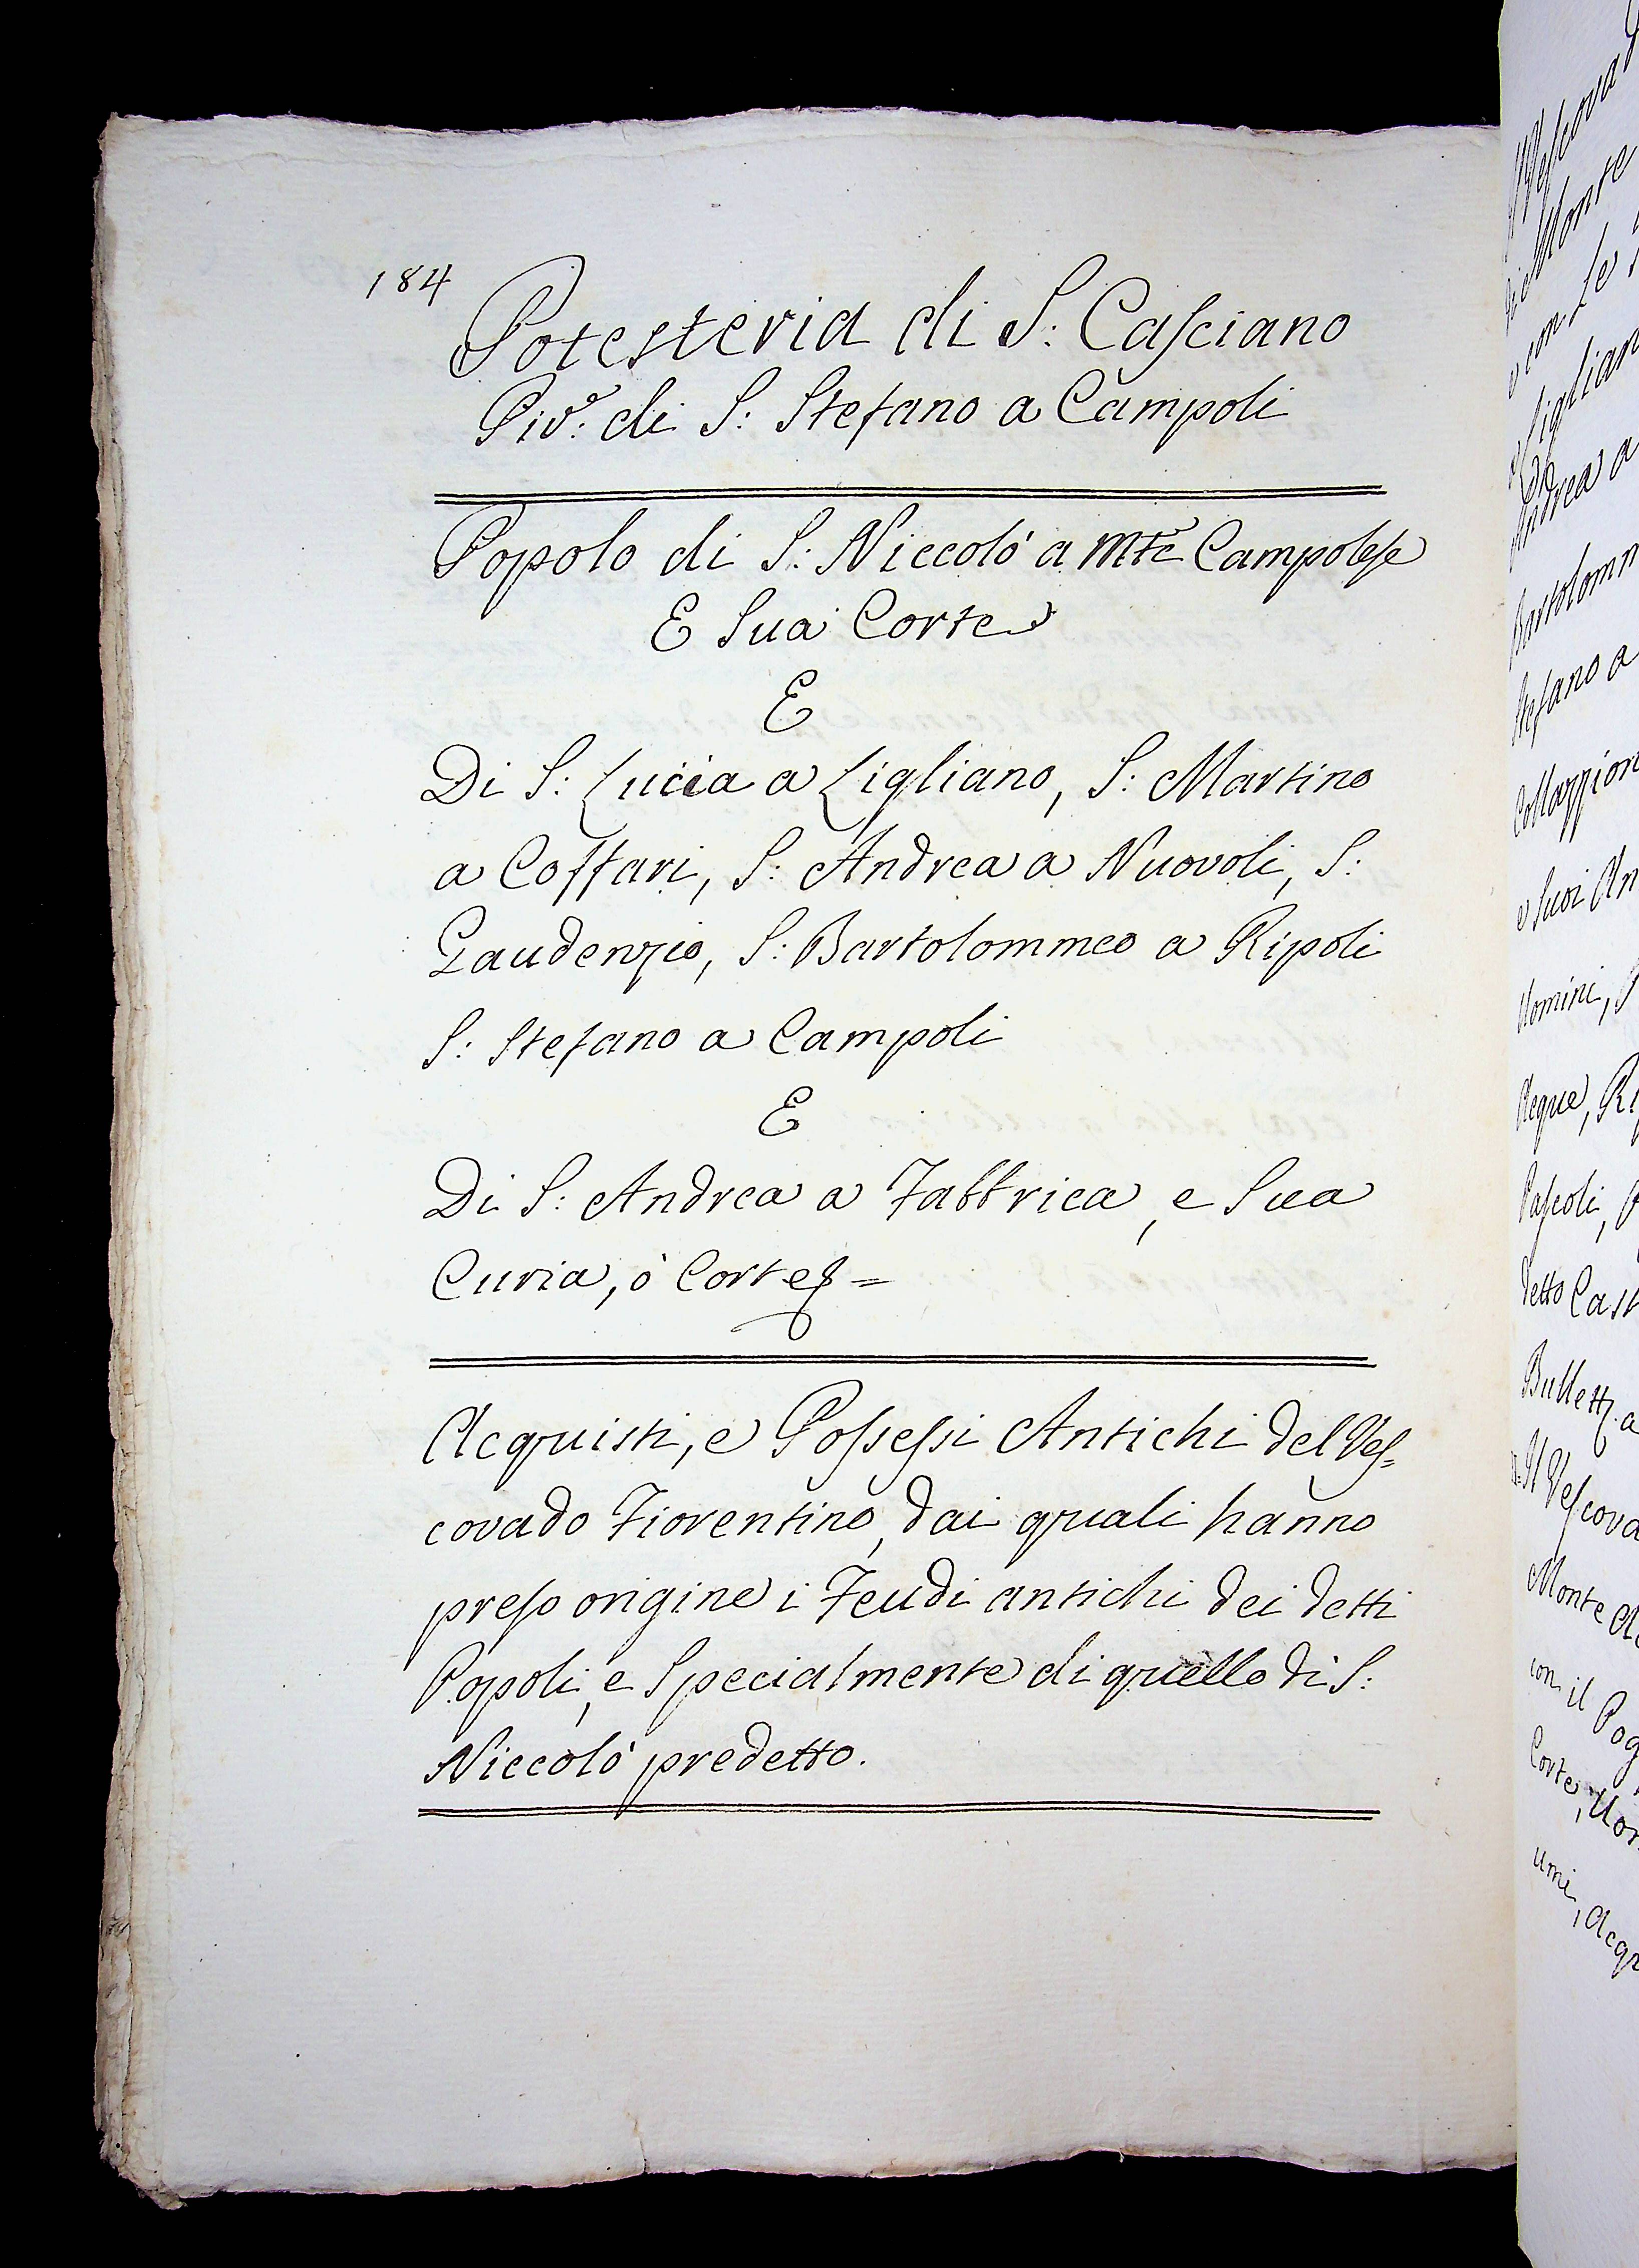 184
Potesteria di S: Casciano
Piv.e di S: Stefano a Campoli
Popolo di S: Niccolò a Mte Campolese
E Sua Corte
E
Di S: Lucia a Ligliano, S: Martino
a Coffari, S: Andrea a Nuovoli, S:
Gaudenzio, S: Bartolommeo a Ripoli
S: Stefano a Campoli
E
Di S: Andrea a Fabbrica, e Sua
Curia, ò Corte =
Acquisti, e Possessi Antichi del Ves=
covado Fiorentino, dai quali hanno
preso origine i Feudi antichi dei detti
Popoli, e Specialmente di quello di S:
Niccolò predetto.
Vescova
Monte
con le
Ligliano
Andrea a
Bartolomm
Stefano a
Collazzion
e Suoi An
Uomini,
Acque, Ri
Pascoli,
detto Cast
Bullett. a
Il Vescova
Monte
con il Pog
Corte, Uom
umi, Acqu